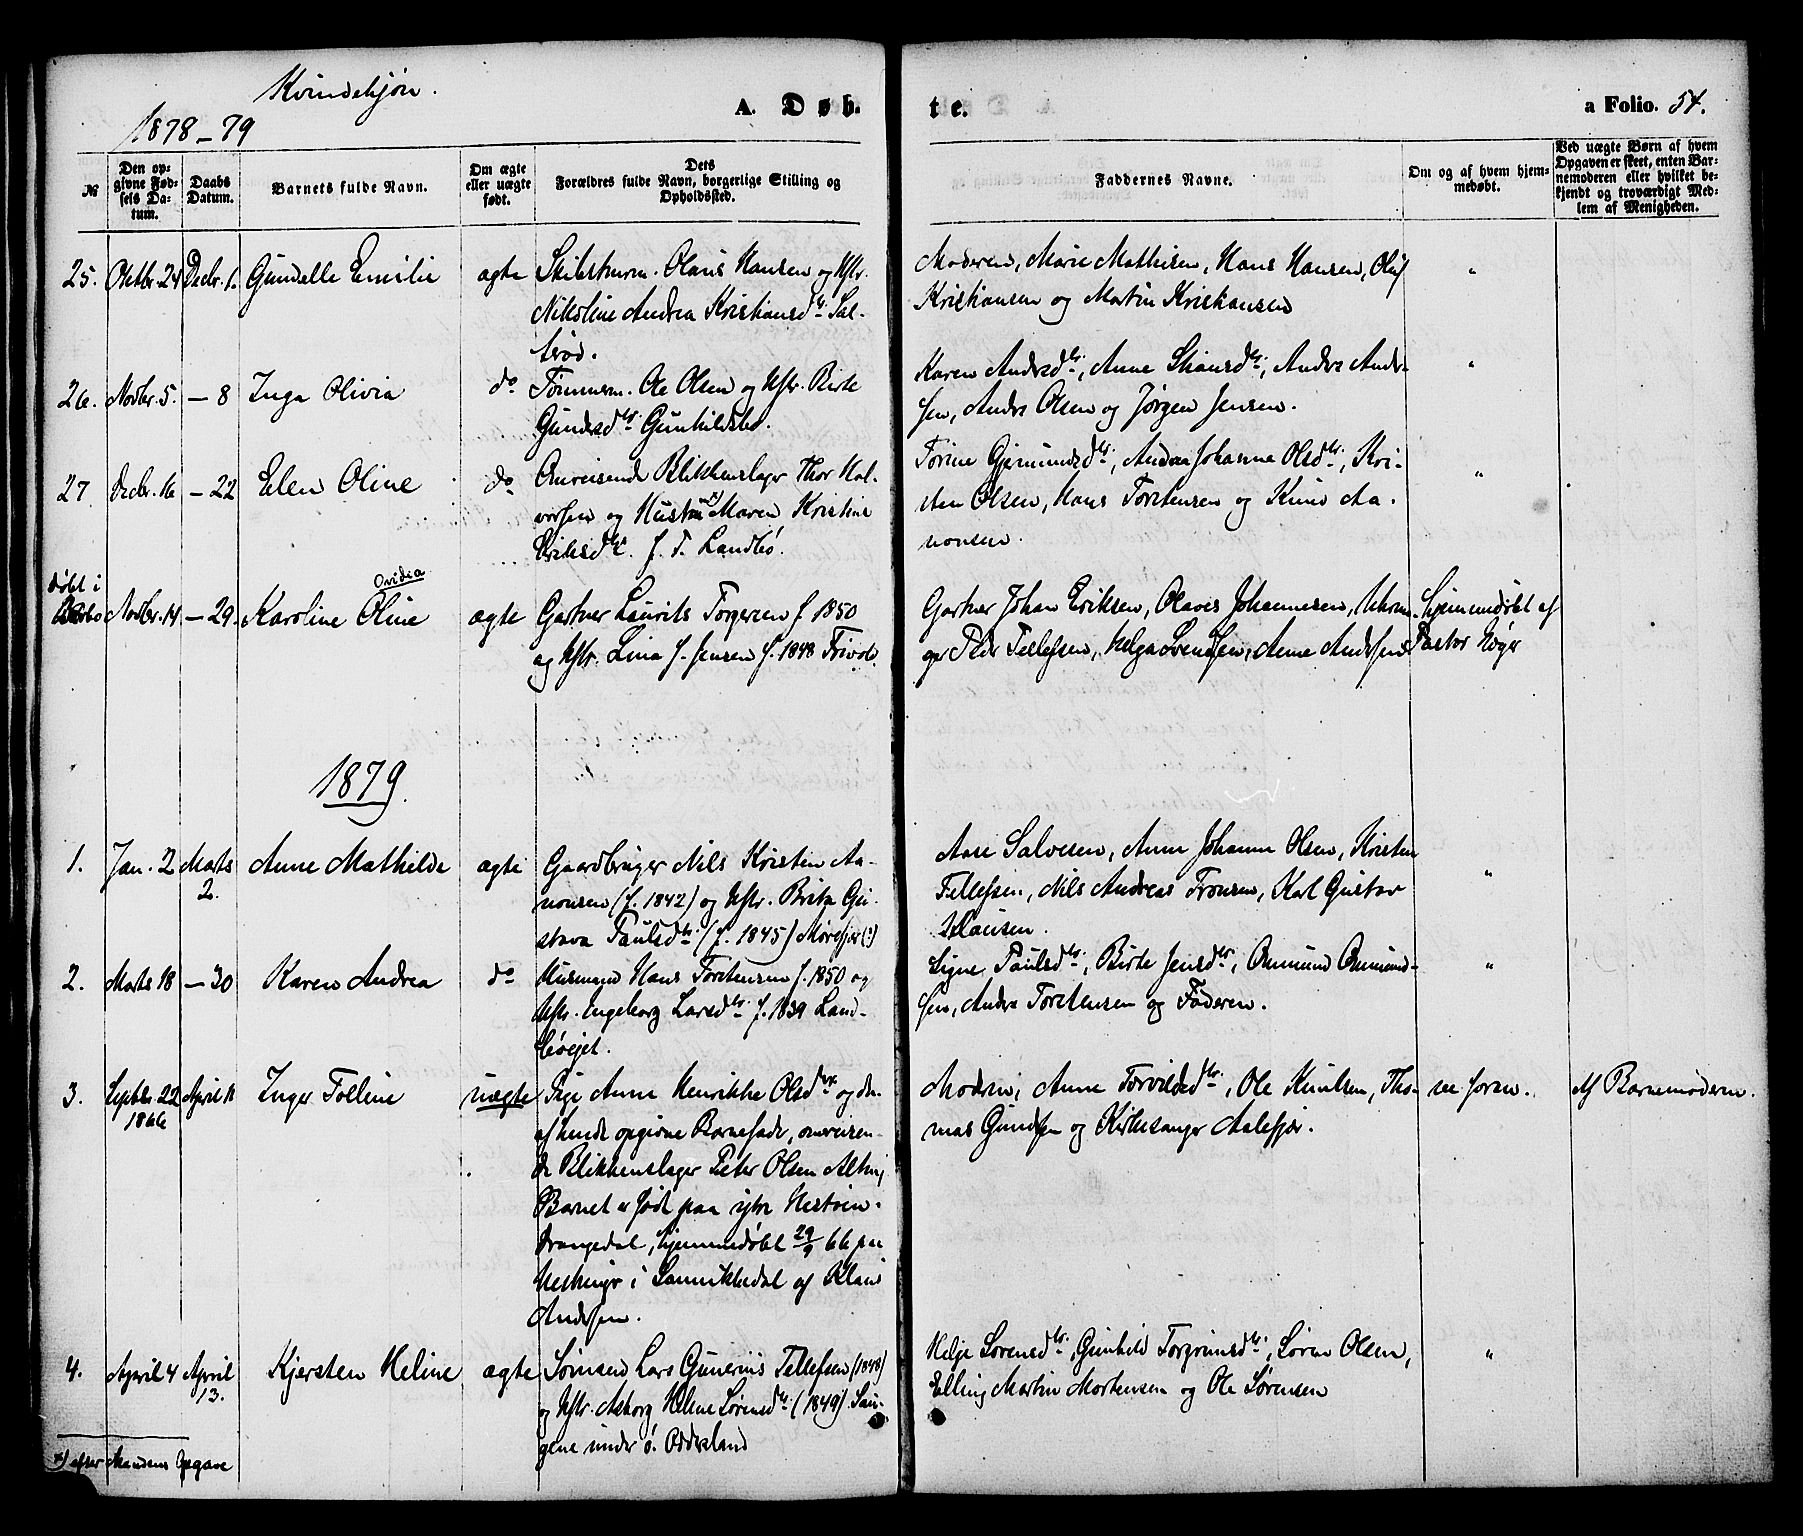 Kvindekjøn.
1878-79
A. Døb-
te.
a Folio. 54.
№
Den op-
givne Fød-
sels Da-
tum.
Daabs
Datum.
Barnets fulde Navn.
Om ægte
eller uægte
født.
Dets
Forældres fulde Navn, borgerlige Stilling og
Opholdssted.
Faddernes Navne.
Om og af hvem hjem-
medøbt.
Ved uægte Børn af hvem
Opgaven er skeet, enten Bar-
nemoderen eller hvilket be-
kjendt og troværdigt Med-
lem af Menigheden.
25. Oktbr. 24 Decbr. 1. Gundelle Emilie ægte Skibstømm. Olaus Hansen og Hstr.
Nikoline Andrea Kristiansdtr. Sal-
trød.
Moderen, Marie Mathisen, Hans Hansen, Oluf
Kristiansen og Martin Kristiansen "
26. Novbr. 5. — 8 Inga Olivia do Tømmerm. Ole Olsen og Hstr. Birte
Gundersdtr. Gunhildsbo.
Karen Andersdtr., Anne dtr., Anders Ander-
sen, Anders Olsen og Jørgen Jensen. "
27 Decbr. 16 — 22 Elen Oline do Omreisende Blikkenslager Thor Hal-
vorsen og Hustru x) Maren Kristine
Eriksdtr. f. T. Landbø.
Torine Gjermundsdtr., Andrea Johanne Olsdtr., Kri-
sten Olsen, Hans Torstensen og Knud Aa-
nonsen. "
døbt i
Barbo Novbr. 14 — 29. Karoline Ovidia Oline ægte Gartner Laurits Torgersen f. 1850
og Hstr. Lina f. Jensen f. 1848 Frivold.
Gartner Johan Eriksen, Olaves Johannesen, Uhrma-
ger Peder Tellefsen, Helga Svendsen, Anne Andersen
Hjemmedøbt af
Pastor Høyer
1879.
1. Jan. 2 Marts
2. Anne Mathilde ægte Gaardbruger Nils Kristen Aa-
nonsen (f. 1842) og Hstr. Berta Gu-
stava Paulsdtr. (f. 1845) Morefjær (?)
Aase Salvesen, Anne Johanne Olsen, Kristen
Tellefsen, Nils Andreas Tronsen, Karl Gustav
Hansen. "
2. Marts 18 — 30 Karen Andrea do Husmand Hans Torstensen f. 1850 og
Hstr. Ingeborg Larsdtr. f. 1839 Land-
bøejet.
Signe Paulsdtr., Birte Jensdtr., Omund Omund-
sen, Anders Torstensen og Faderen. "
3. Septbr. 22
1866 April 11 Inger Tolline uægte Pige Anne Henrikke Olsdtr. og den
af hende opgivne Barnefader, omreisen-
de Blikkenslager Peter Olsen
Barnet er født paa ytre
Drangedal, hjemmedøbt 29/9 66 paa
i Sannikkedal af Klaus
Andersen.
Moderen, Anne Torvildsdtr., Ole Knutsen, Tho-
mas Gundersen og Kirkesanger Aalefjær.
se foran. Af Barnemoderen.
4. April 4 April
13. Kjersten Heline ægte Sømand Lars Gunerius Tellefsen (1848)
og Hstr. Asborg Helene Sørensdtr. (1849) Sau-
gene under ø. Oddersland
Helje Sørensdtr., Gunhild Torgrimsdtr., Søren Olsen,
Elling Martin Mortensen og Ole Sørensen "
x) efter Mandens Opgave